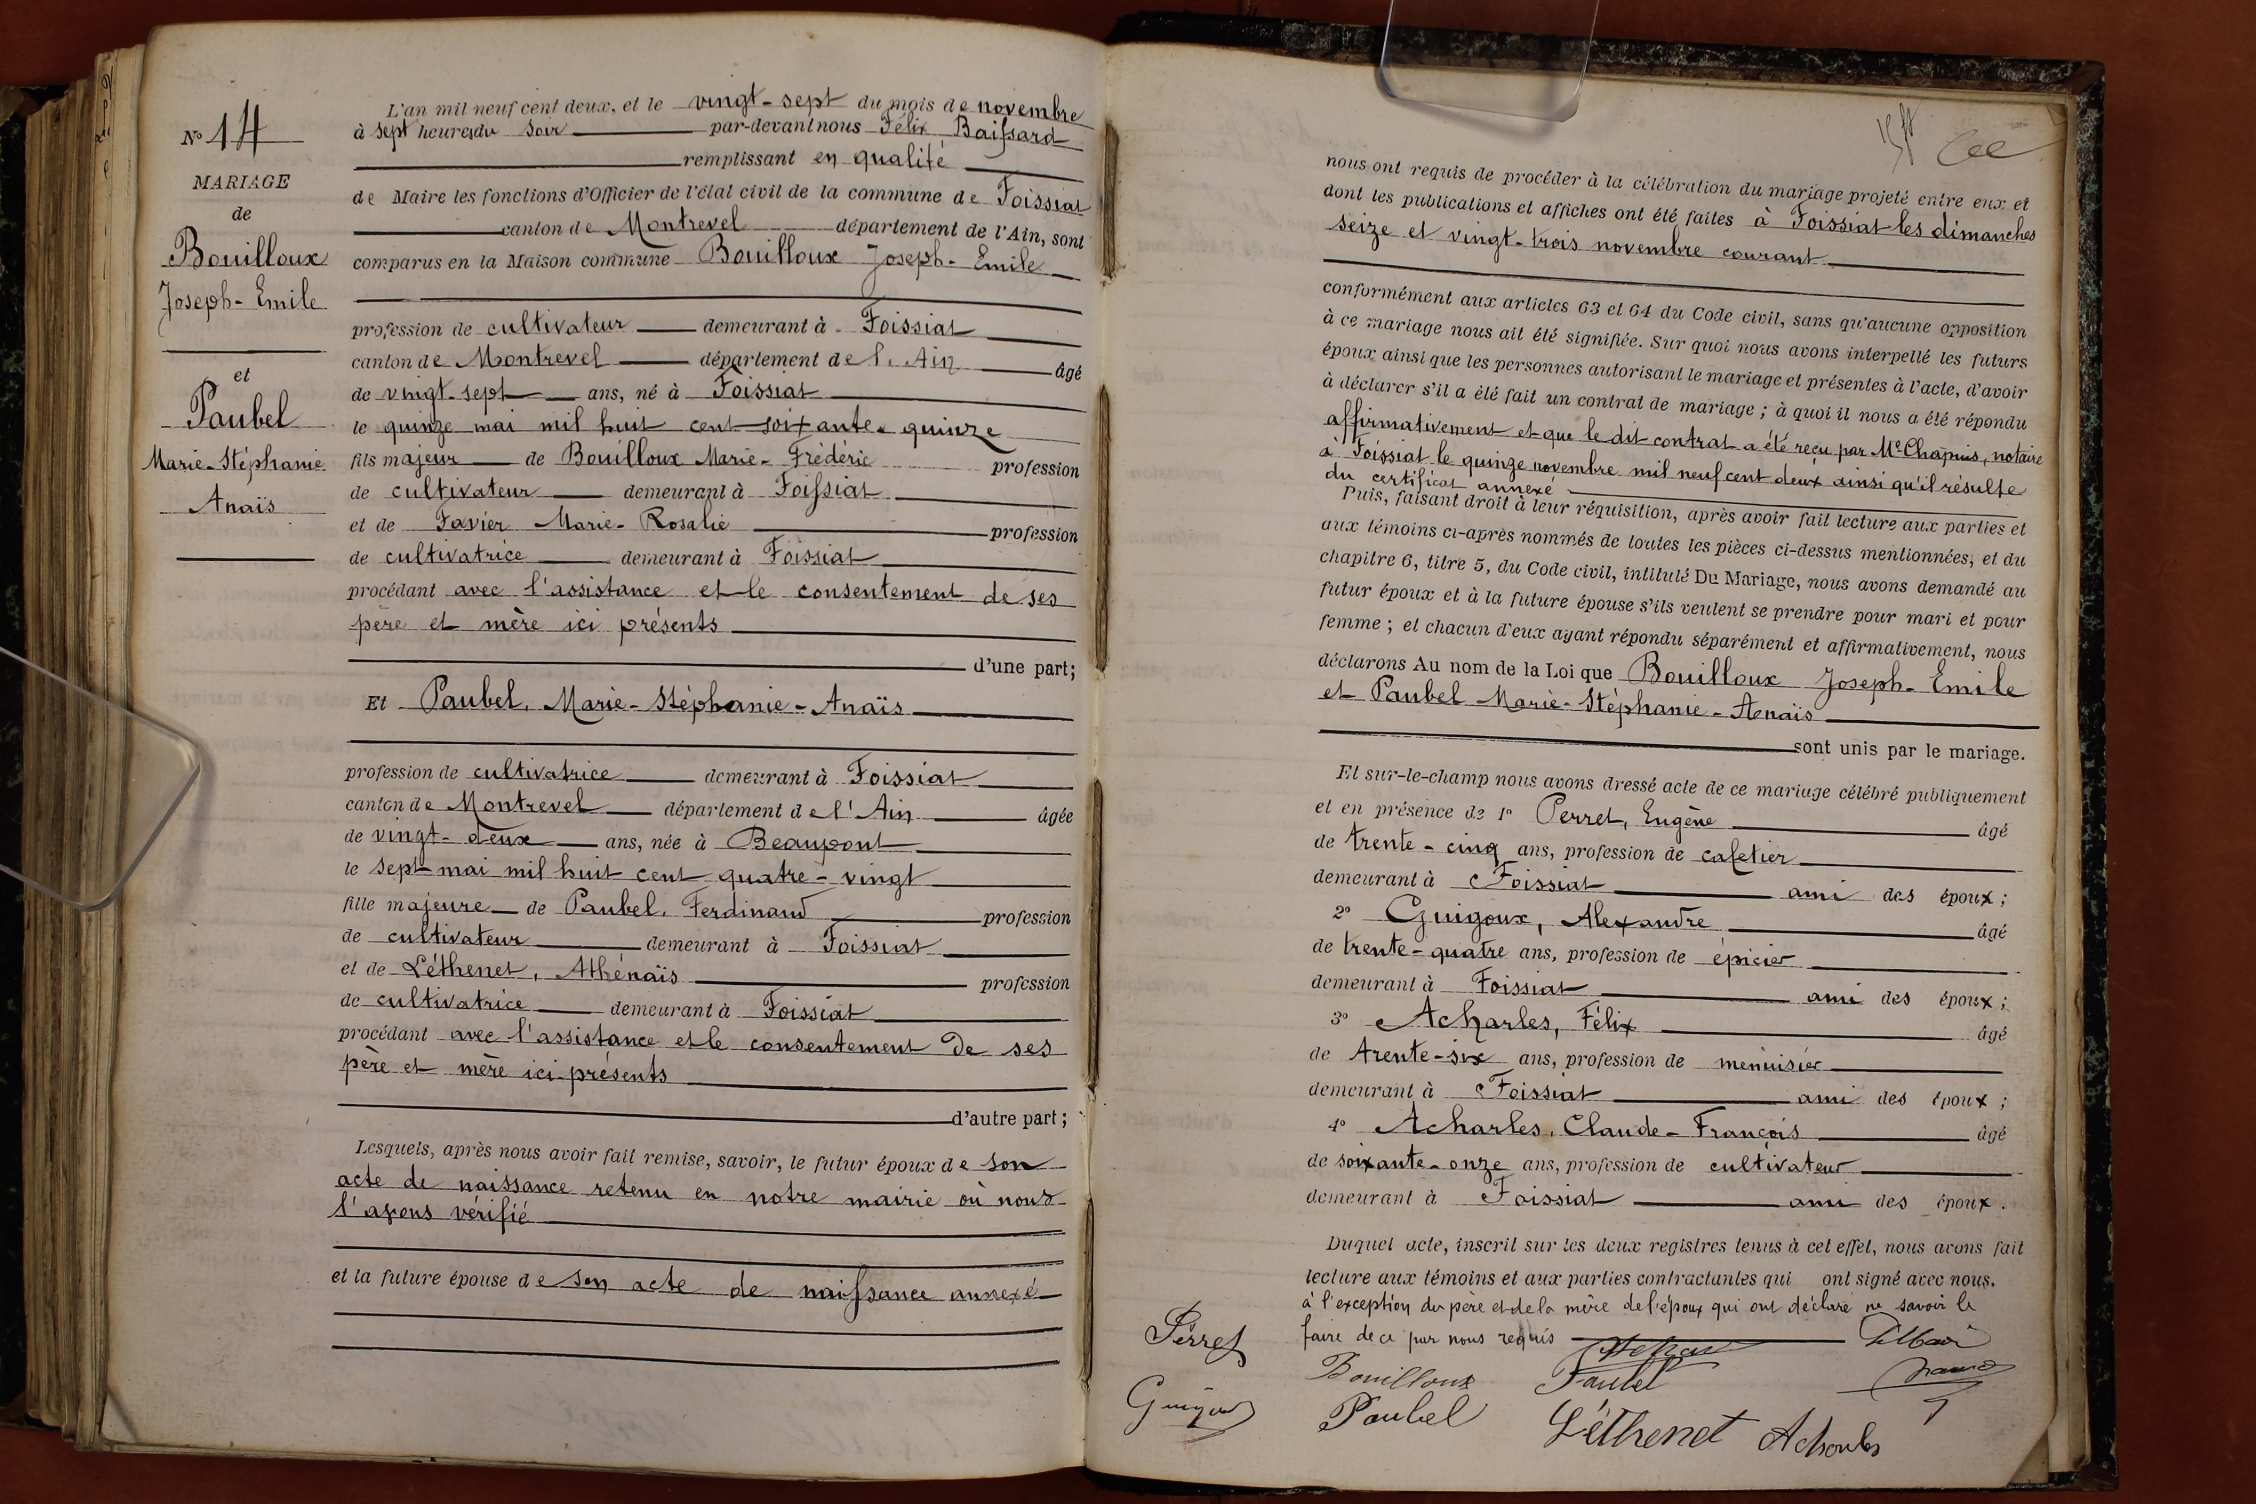 N° 14
MARIAGE
de
Bouilloux
Joseph-Emile
et
Paubel
Marie-Stéphanie
Anaïs
L'an mil neuf cent deux, et le vingt-sept du mois de novembre
à sept heures du soir par-devant nous Félix Baissard
remplissant en qualité
de Maire les fonctions d'Officier de l'état civil de la commune de Foissiat
canton de Montrevel département de l'Ain, sont
comparus en la Maison commune Bouilloux Joseph-Emile
profession de cultivateur demeurant à Foissiat
canton de Montrevel département de l'Ain âgé
de vingt-sept ans, né à Foissiat
le quinze mai mil huit cent soixante-quinze
fils majeur de Bouilloux Marie-Frédéric profession
de cultivateur demeurant à Foissiat
et de Favier Marie-Rosalie profession
de cultivatrice demeurant à Foissiat
procédant avec l'assistance et le consentement de ses
père et mère ici présents
d'une part;
Et Paubel, Marie-Stéphanie-Anaïs
profession de cultivatrice demeurant à Foissiat
canton de Montrevel département de l'Ain âgée
de vingt-deux ans, née à Beaupont
le sept mai mil huit cent quatre-vingt
fille majeure de Paubel, Ferdinand profession
de cultivateur demeurant à Foissiat
et de Léthenet, Athénaïs profession
de cultivatrice demeurant à Foissiat
procédant avec l'assistance et le consentement de ses
père et mère ici-présents
d'autre part;
Lesquels, après nous avoir fait remise, savoir, le futur époux de son
acte de naissance retenu en notre mairie où nous
l'avons vérifié
et la future épouse de son acte de naissance annexé
nous ont requis de procéder à la célébration du mariage projeté entre eux et
dont les publications et affiches ont été faites à Foissiat les dimanches
seize et vingt-trois novembre courant
conformément aux articles 63 et 64 du Code civil, sans qu'aucune opposition
à ce mariage nous ait été signifiée. Sur quoi nous avons interpellé les futurs
époux ainsi que les personnes autorisant le mariage et présentes à l'acte, d'avoir
à déclarer s'il a été fait un contrat de mariage; à quoi il nous a été répondu
affirmativement et que le dit contrat a été reçu par Me Chapuis, notaire
à Foissiat le quinze novembre mil neuf cent deux ainsi qu'il résulte
du certificat annexé
Puis, faisant droit à leur réquisition, après avoir fait lecture aux parties et
aux témoins ci-après nommés de toutes les pièces ci-dessus mentionnées, et du
chapitre 6, titre 5, du Code civil, intitulé Du Mariage, nous avons demandé au
futur époux et à la future épouse s'ils veulent se prendre pour mari et pour
femme; et chacun d'eux ayant répondu séparément et affirmativement, nous
déclarons Au nom de la Loi que Bouilloux Joseph-Emile
et Paubel Marie-Stéphanie-Anaïs
sont unis par le mariage.
Et sur-le-champ nous avons dressé acte de ce mariage célébré publiquement
et en présence de 1° Perret, Eugène âgé
de trente-cinq ans, profession de cafetier
demeurant à Foissiat ami des époux;
2° Guigoux, Alexandre âgé
de trente-quatre ans, profession de épicier
demeurant à Foissiat ami des époux;
3° Acharles, Félix âgé
de trente-six ans, profession de menuisier
demeurant à Foissiat ami des époux;
4° Acharles, Claude-François âgé
de soixante-onze ans, profession de cultivateur
demeurant à Foissiat ami des époux.
Duquel acte, inscrit sur les deux registres tenus à cet effet, nous avons fait
lecture aux témoins et aux parties contractantes qui ont signé avec nous.
à l'exception du père et de la mère de l'époux qui ont déclaré ne savoir le
faire de ce par nous requis
Perret
Bouilloux Paubel
Guigoux Paubel Léthenet Acharles